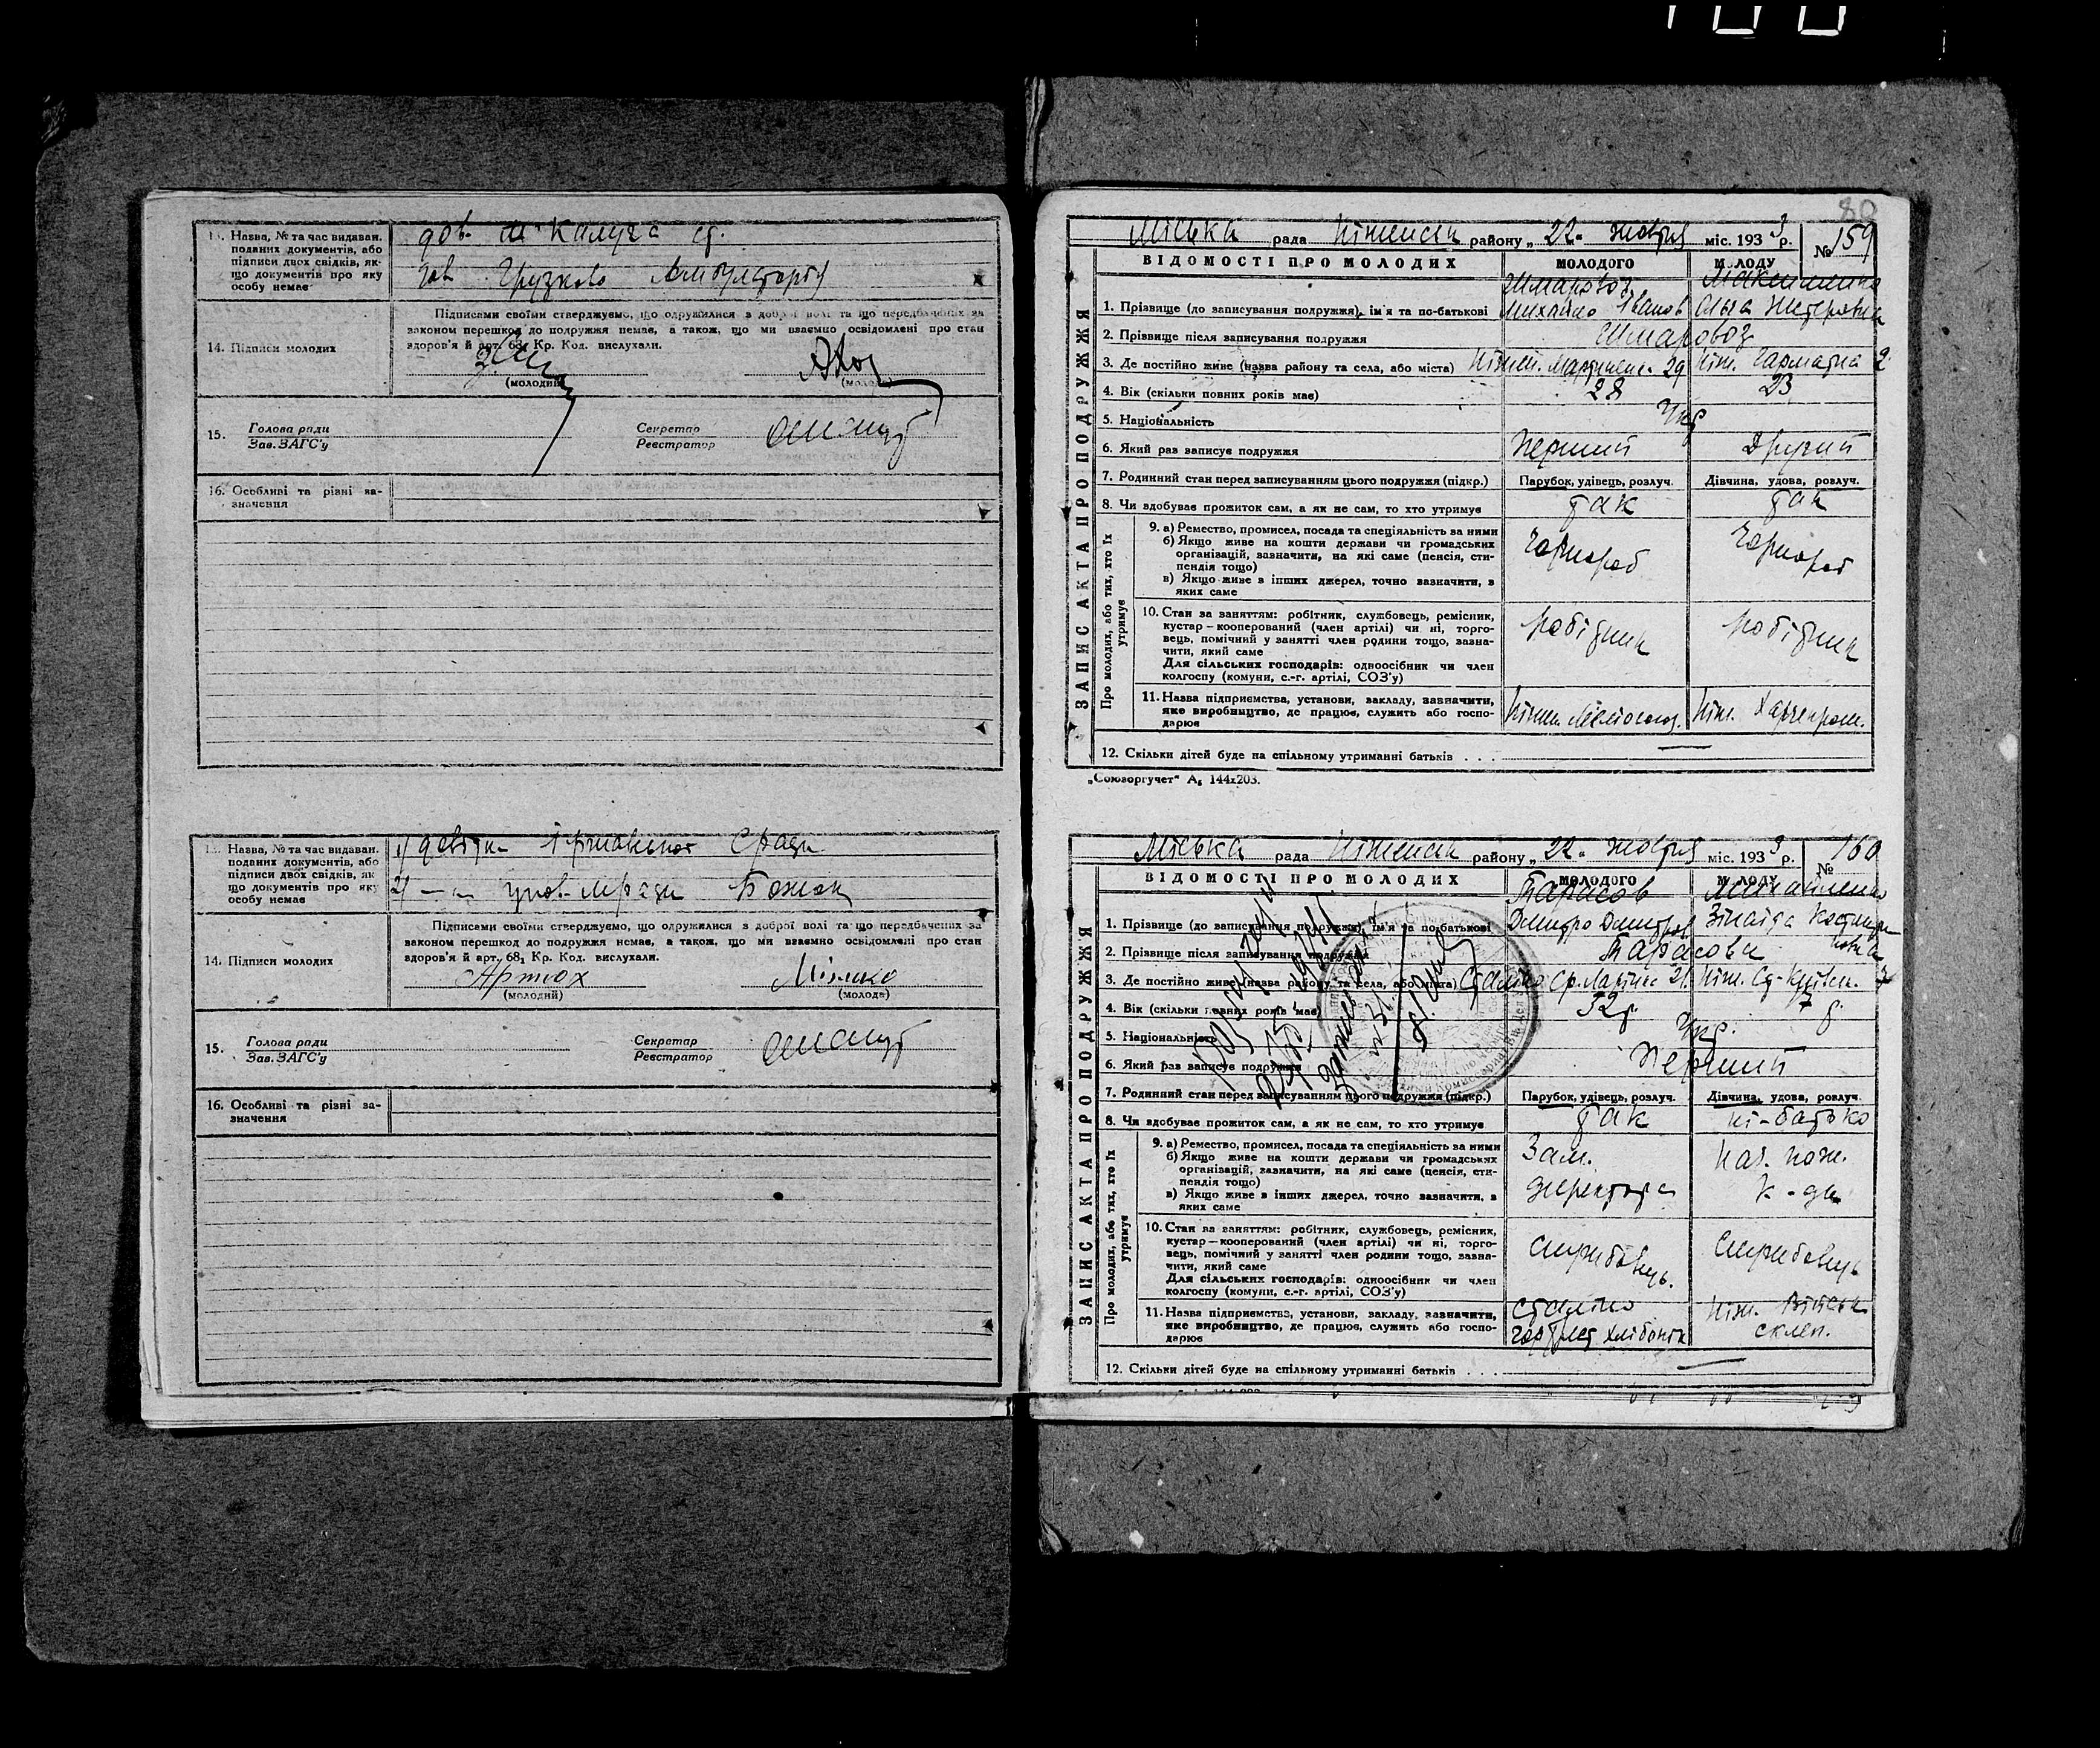 80
13. Назва, № та час видаван.
поданих документів, або
підписи двох свідків, як-
що документів про яку
особу немає
дов. м Калуга
дов
14. Підписи молодих
Підписами своїми стверджуємо, що одружилися з доброї волі та що передбачених за
законом перешкод до подружжя немає, а також, що ми взаємно освідомлені про стан
здоров'я й арт. 68, Кр. Код. вислухали.
(молодий) (молода)
15. Голова ради
Зав. ЗАГС'у
Секретар
Реєстратор
16. Особливі та різні за-
значення
13. Назва, № та час видаван.
поданих документів, або
підписи двох свідків, як
що документів про яку
особу немає
1)
2) Божок
14. Підписи молодих
Підписами своїми стверджуємо, що одружилися з доброї волі та що передбачених за
законом перешкод до подружжя немає, а також, що ми взаємно освідомлені про стан
здоров'я й арт. 68, Кр. Код. вислухали.
Артюх
(молодий) (молода)
15. Голова ради
Зав. ЗАГС'у
Секретар
Реєстратор
16. Особливі та різні за-
значення
ЗАПИС АКТА ПРО ПОДРУЖЖЯ
Міська рада Ніженськ району „ 22 " жовтня міс. 193 3 р. № 159
ВІДОМОСТІ ПРО МОЛОДИХ МОЛОДОГО МОЛОДУ
Шмаровоз
1. Прізвище (до записування подружжя), ім'я та по-батькові Михайло Іванов
2. Прізвище після записування подружжя Шмаровоз
3. Де постійно живе (назва району та села, або міста) 29 Ніж. Гарматна 2
4. Вік (скільки повних років має) 28 23
5. Національність Укр
6. Який раз записує подружжя Перший Другий
7. Родинний стан перед записуванням цього подружжя (підкр.) Парубок, удівець, розлуч. Дівчина, удова, розлуч.
8. Чи здобуває прожиток сам, а як не сам, то хто утримує так так
Про молодих, або тих, хто їх утримує
9. а) Ремество, промисел, посада та спеціяльність за ними
б) Якщо живе на кошти держави чи громадських
організацій, зазначити, на які саме (пенсія, сти-
пендія тощо)
в) Якщо живе з інших джерел, точно зазначити, з
яких саме
Чорнороб Чорнороб
10. Стан за заняттям: робітник, службовець, ремісник,
кустар — кооперований (член артілі) чи ні, торго-
вець, помічний у занятті член родини тощо, зазна-
чити, який саме
Для сільських господарів: одноосібник чи член
колгоспу (комуни, с.-г. артілі, СОЗ'у)
робітник робітник
11. Назва підприємства, установи, закладу, зазначити,
яке виробництво, де працює, служить або госпо-
дарює
Ніж. Харчепром.
12. Скільки дітей буде на спільному утриманні батьків . . . —
„Союзоргучет" А₆ 144х203.
ЗАПИС АКТА ПРО ПОДРУЖЖЯ
Міська рада Ніженськ району „ 22 " жовтня міс. 193 3 р. № 160
ВІДОМОСТІ ПРО МОЛОДИХ МОЛОДОГО МОЛОДУ
Тарасов Михайленко
1. Прізвище (до записування подружжя), ім'я та по-батькові Дмитро Дмитров Зінаїда
2. Прізвище після записування подружжя Тарасови
3. Де постійно живе (назва району та села, або міста) Сталіно
4. Вік (скільки повних років має) 32 р.
5. Національність Укр.
6. Який раз записує подружжя Перший
7. Родинний стан перед записуванням цього подружжя (підкр.) Парубок, удівець, розлуч. Дівчина, удова, розлуч.
8. Чи здобуває прожиток сам, а як не сам, то хто утримує так ні - батько
Про молодих, або тих, хто їх утримує
9. а) Ремество, промисел, посада та спеціяльність за ними
б) Якщо живе на кошти держави чи громадських
організацій, зазначити, на які саме (пенсія, сти-
пендія тощо)
в) Якщо живе з інших джерел, точно зазначити, з
яких саме
Зам. Нач. пож.
директора к-ди
10. Стан за заняттям: робітник, службовець, ремісник,
кустар — кооперований (член артілі) чи ні, торго-
вець, помічний у занятті член родини тощо, зазна-
чити, який саме
Для сільських господарів: одноосібник чи член
колгоспу (комуни, с.-г. артілі, СОЗ'у)
службовець. службовець
11. Назва підприємства, установи, закладу, зазначити,
яке виробництво, де працює, служить або госпо-
дарює
Сталіно Ніж. Військ
склеп.
12. Скільки дітей буде на спільному утриманні батьків . . . —